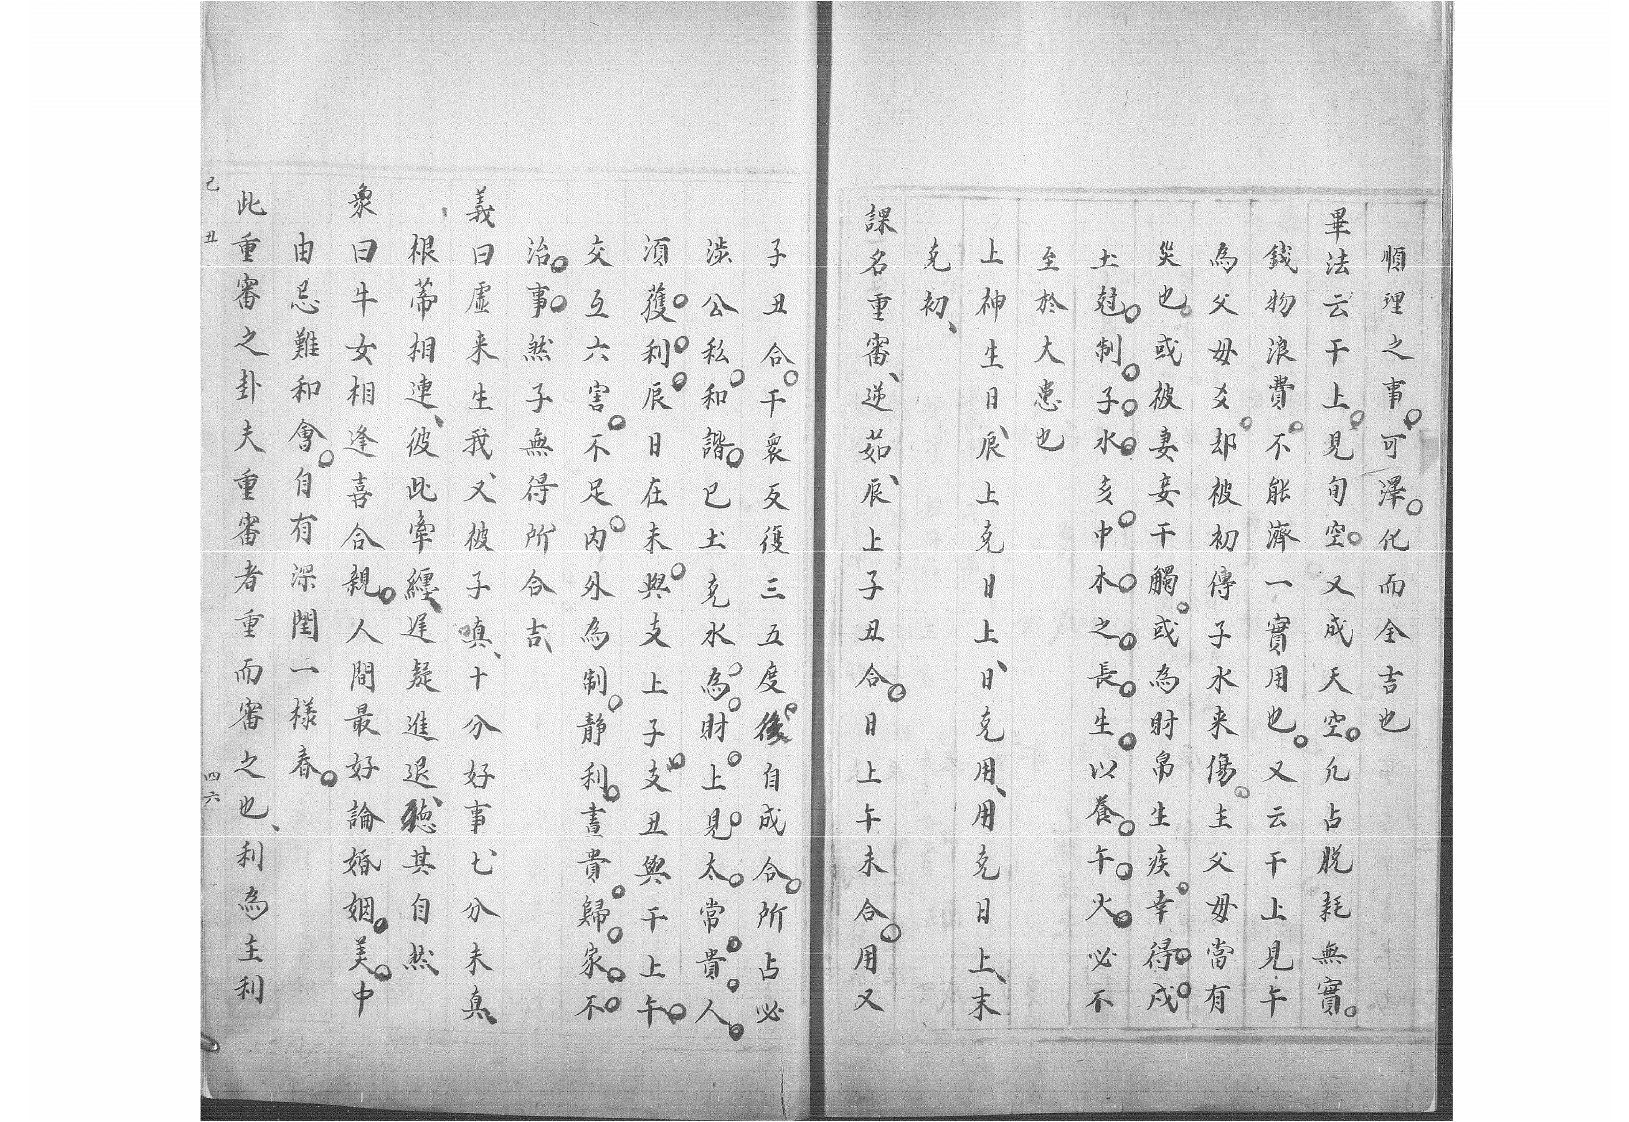 順理之事可澤化而全吉也
畢法云干上見旬空又成天空凢占脱耗無實
錢物浪費不能濟一實用也又云干上見午
為父母爻却被初傳子水来傷主父母當有
災也或被妻妾干觸或為財帛生疾幸得戌
土尅制子水亥中木之長生以養午火必不
至於大患也
上神生日辰上克日上日克用用克日上末
克初
課名重審逆茹辰上子丑合日上午未合用又
子丑合干衆反復三五度後自成合所占必
涉公私和諧巳土克水為財上見太常貴人
須獲利辰日在未與支上子支丑與干上午
交互六害不足内外為制静利晝貴歸家不
治事然子無得所合吉
義曰虛来生我又被子嗔十分好事七分未真
根蒂相連彼此牽纏遅疑進退聽其自然
象曰牛女相逢喜合親人間最好論婚姻美中
由忌難和會自有深閨一樣春
此重審之卦夫重審者重而審之也利為主利
己丑
四六